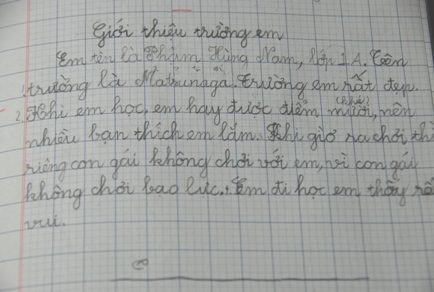 Giới thiệu trường em
Em tên là Phạm Hùng Nam, lớp 1A. Tên
trường là Matsunaga. Trường em rất đẹp.
Khi em học, em hay được điểm mười, nên
nhiều bạn thích em lắm. Khi giờ ra chơi thì
riêng con gái không chơi với em, vì con gái
không chơi bạo lực. Em đi học em thấy rất
vui.